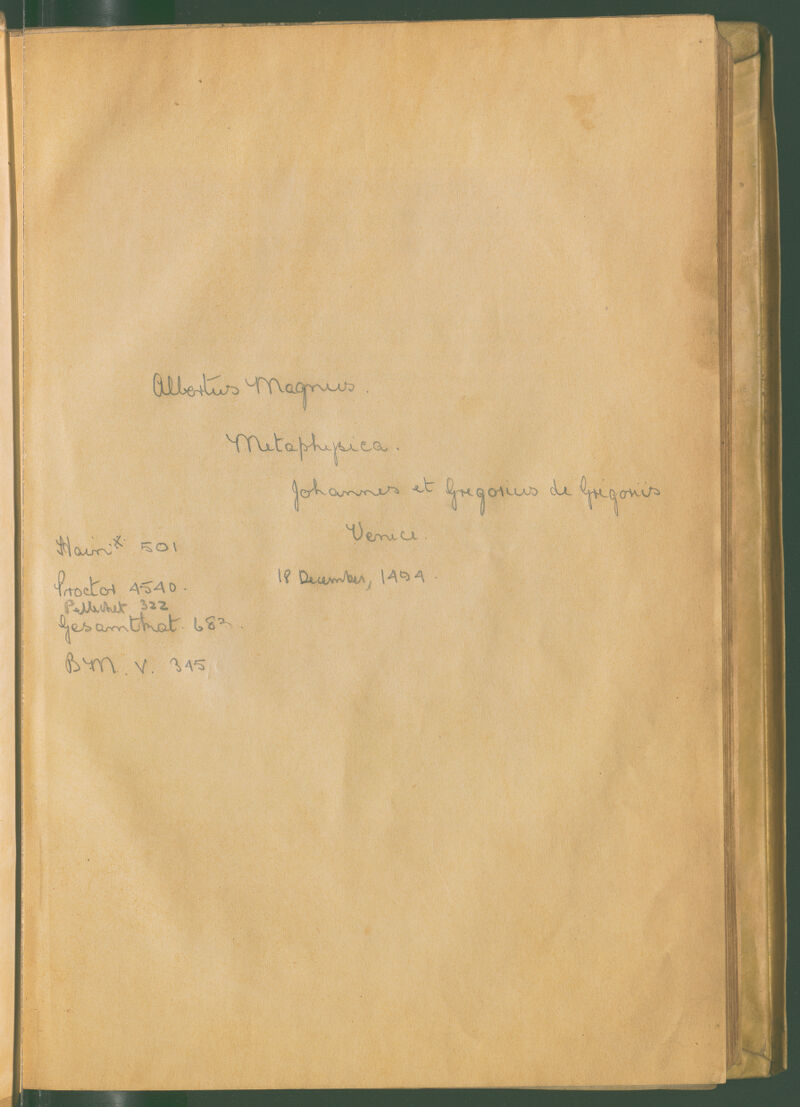 Albertus Magnus.
Metaphysica.
Johannes et Gregorius de Grigoris
Venice.
18 December, 1494.
Hain x 501
Proctor 4540.
Pellechet 322
Gesamthat. 682.
BM. V. 345